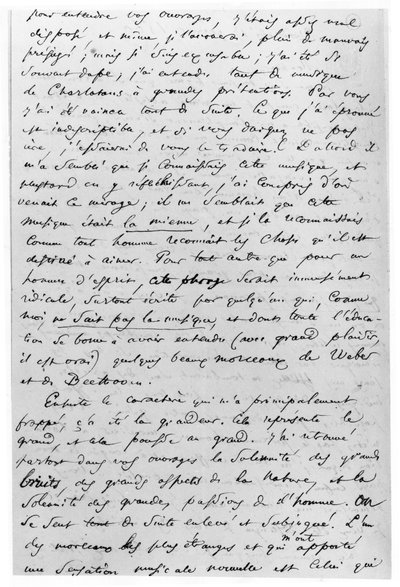 pour entendre vos ouvrages, j'étais assez mal
disposé et même je l'avouerai, plein de mauvais
préjugés ; mais je suis excusable ; j'ai été si
souvent dupe ; j'ai entendu tant de musique
de Charlatans à grandes prétentions. Par vous
j'ai été vaincu tout de suite. Ce que j'ai éprouvé
est indescriptible, et si vous daignez ne pas
rire, j'essaierai de vous le traduire. D'abord il
m'a semblé que je connaissais cette musique, et
plus tard en y réfléchissant, j'ai compris d'où
venait ce mirage ; il me semblait que cette
musique était la mienne, et je la reconnaissais
comme tout homme reconnaît les choses qu'il est
destiné à aimer. Pour tout autre que pour un
homme d'esprit, cette phrase serait immensément
ridicule, surtout écrite par quelqu'un qui, comme
moi ne sait pas la musique, et dont toute l'éduca-
tion se borne à avoir entendu (avec grand plaisir,
il est vrai) quelques beaux morceaux de Weber
et de Beethoven.
Ensuite le caractère qui m'a principalement
frappé, ç'a été la grandeur. Cela représente le
grand, et cela pousse au grand. J'ai retrouvé
partout dans vos ouvrages la solennité des grands
bruits, des grands aspects de la Nature, et la
solennité des grandes passions de l'homme. On
se sent tout de suite enlevé et subjugué. L'un
des morceaux les plus étranges et qui m'ont apporté
une sensation musicale nouvelle est celui qui